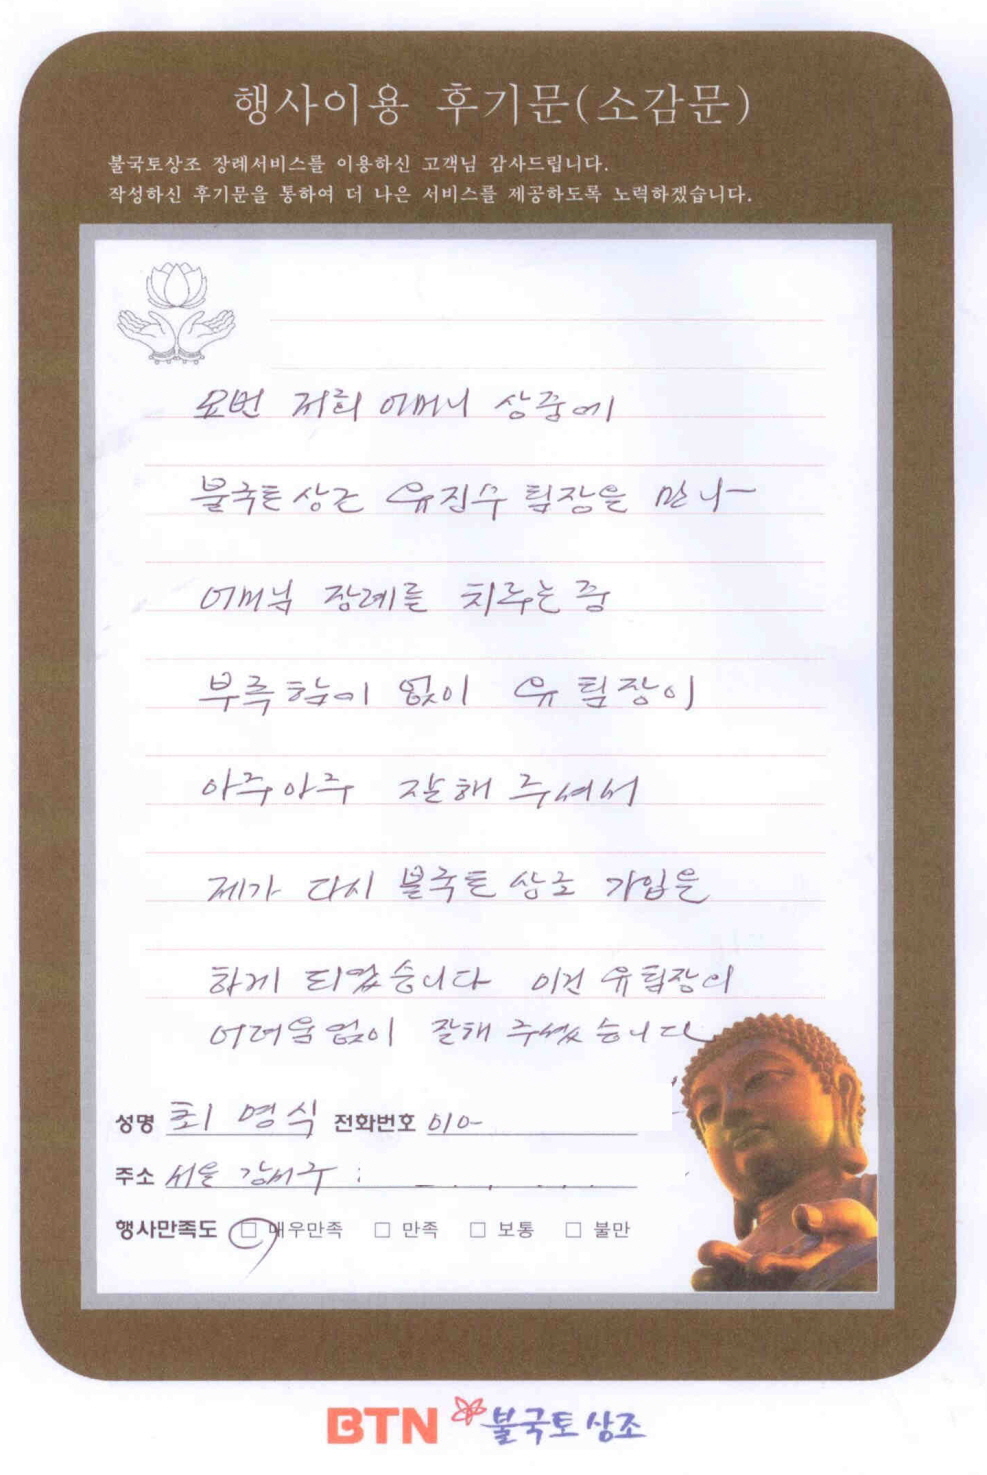 행사이용 후기문(소감문)
불국토상조 장례서비스를 이용하신 고객님 감사드립니다.
작성하신 후기문을 통하여 더 나은 서비스를 제공하도록 노력하겠습니다.
요번 저희 어머니 상중에
불국토상조 유진수 팀장을 만나
어머님 장례를 치루는중
부족함이 없이 유팀장이
아주아주 잘해 주셔서
제가 다시 불국토 상조 가입을
하게 되었습니다 이건 유팀장이
어려움없이 잘해 주셨습니다
성명 최영식 전화번호 010-
주소 서울 강서구
행사만족도 □ 매우만족 □ 만족 □ 보통 □ 불만
BTN 불국토 상조